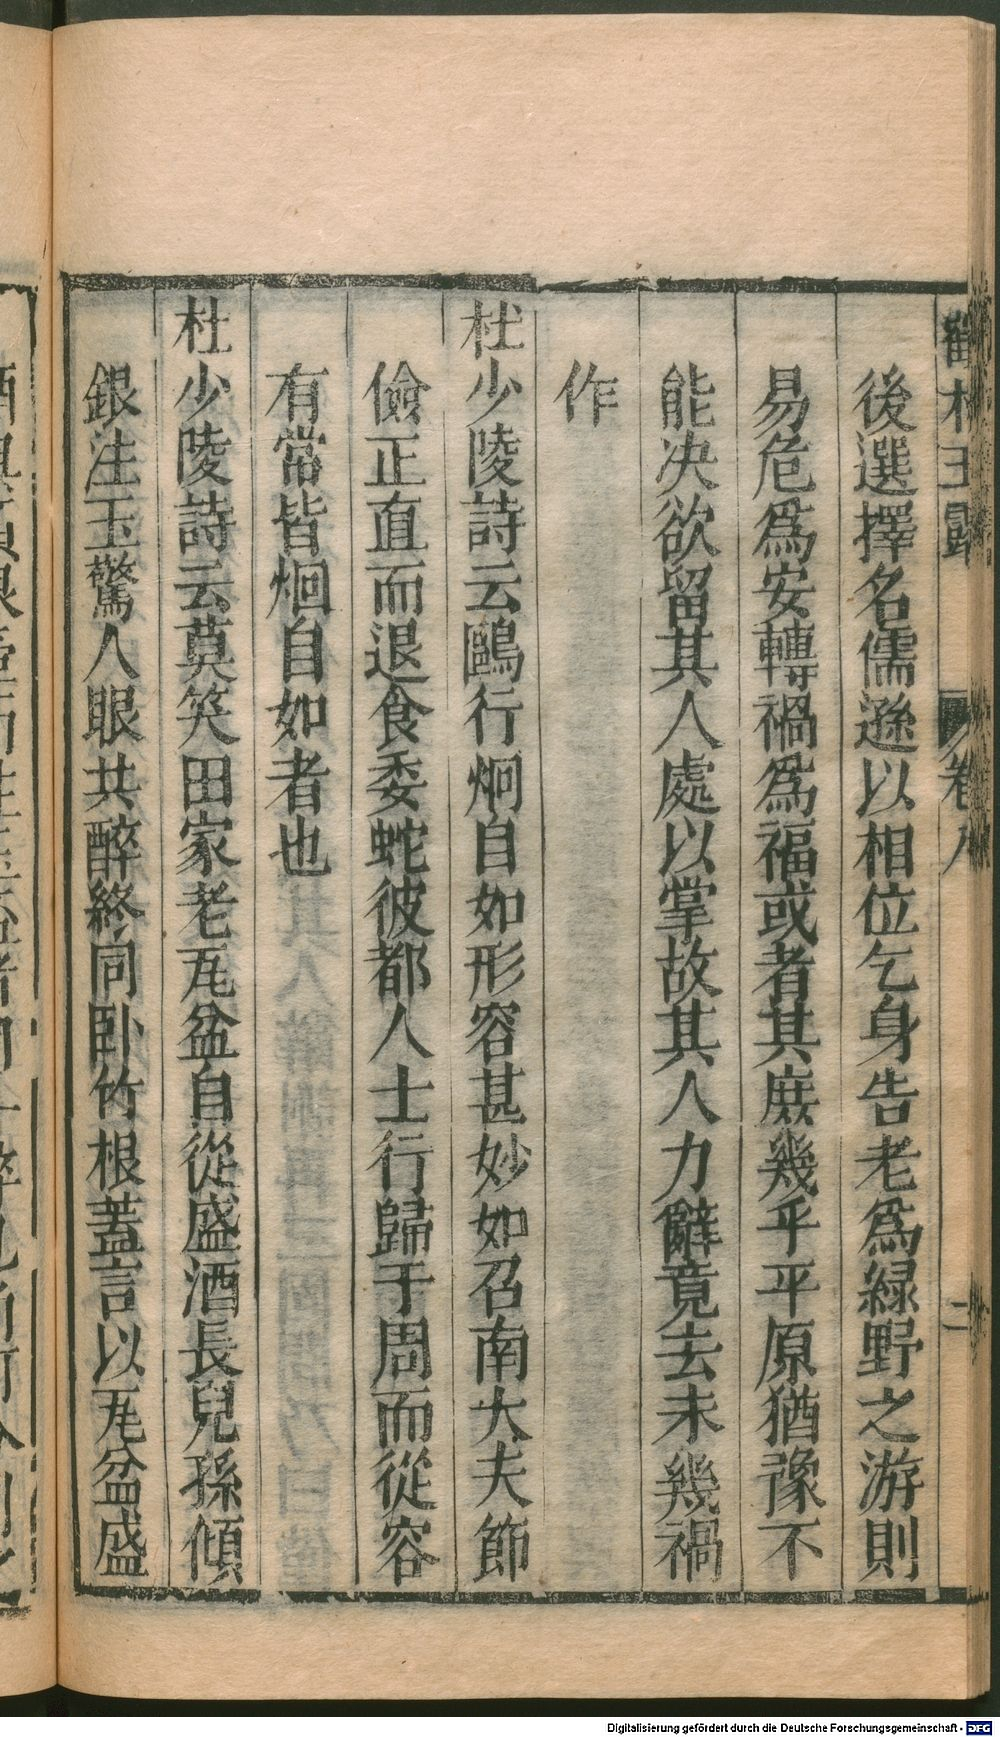 鶴林玉露 卷八 二
後選擇名儒遜以相位乞身告老爲緑野之游則
易危爲安轉禍爲福或者其庻幾乎平原猶豫不
能决欲留其人處以掌故其人力辭竟去未幾禍
作
杜少陵詩云鷗行烱自如形容甚妙如召南大夫節
儉正直而退食委蛇彼都人士行歸于周而從容
有常皆烱自如者也
杜少陵詩云莫笑田家老瓦盆自從盛酒長兒孫傾
銀注玉驚人眼共醉終同卧竹根蓋言以瓦盆盛
Digitalisierung gefördert durch die Deutsche Forschungsgemeinschaft - DFG